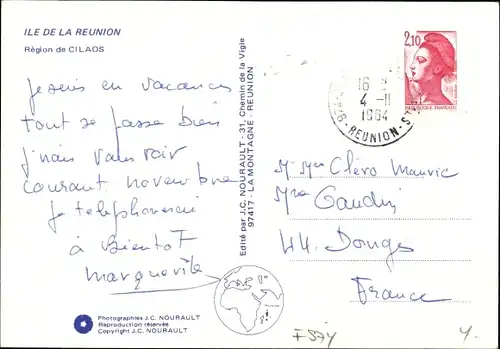 ILE DE LA REUNION
Région de CILAOS
Je suis en vacances
tout se passe bien
j'irais vous voir
courant novembre
je telephonerai
à Bientot
Edité par J.C. NOURAULT - 31, Chemin de la Vigie
97417 - LA MONTAGNE - REUNION
Photographies J.C. NOURAULT
Reproduction réservée
Copyright J.C. NOURAULT
2,10
REPUBLIQUE FRANCAISE
16
4 - 11
1984
REUNION
Mr Mme Cléro
Gaudin
44. Donges
France